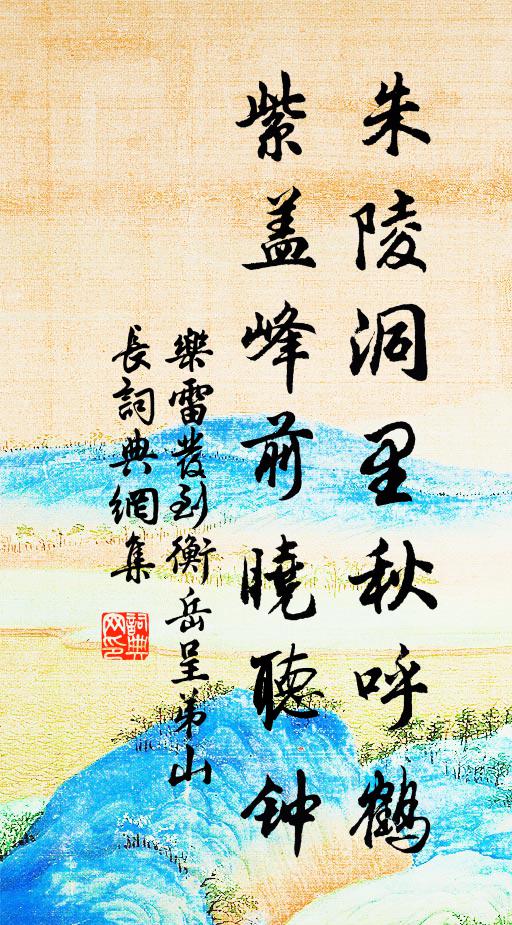 朱陵洞里秋呼鹤
紫盖峰前晓聽钟
樂雷發到衡岳呈弟山
長詞典網集
詞典网印